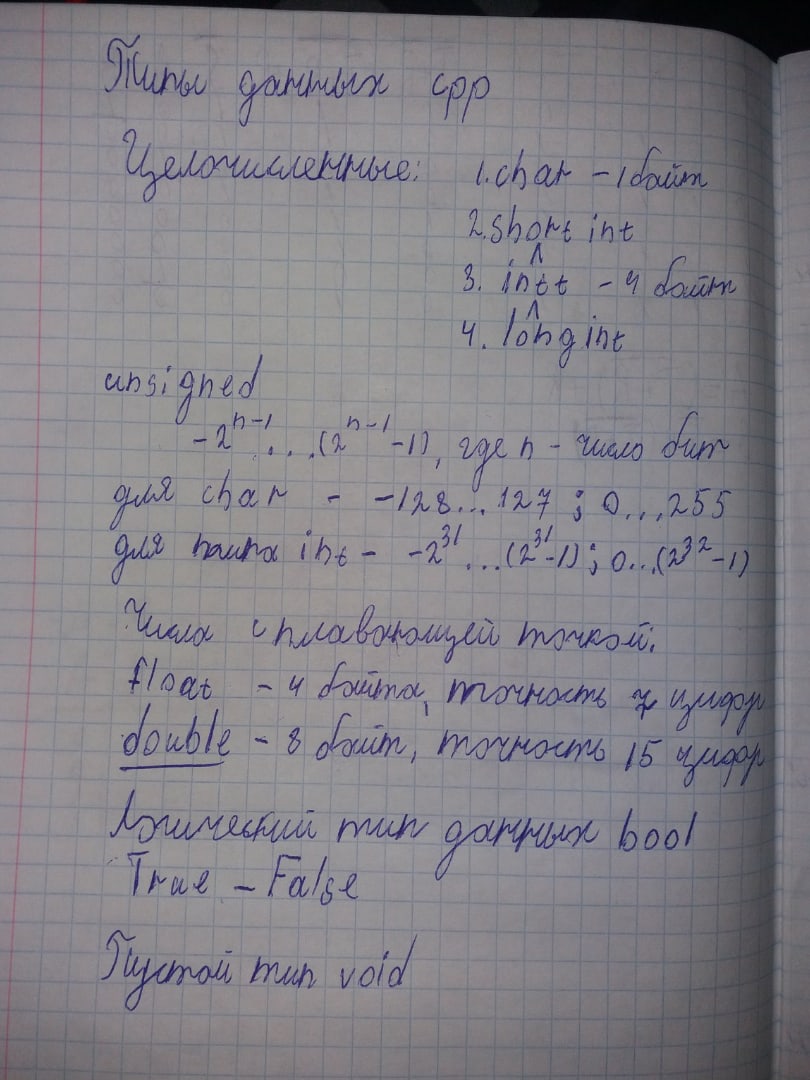 Типы данных cpp
Целочисленные: 1. char - 1 байт
2. short int
^
3. intt - 4 байт
^
4. long int
unsigned
-2^(n-1)...(2^(n-1)-1), где n - число бит
для char - -128...127; 0...255
для типа int - -2^31...(2^31-1); 0...(2^32-1)
Числа с плавающей точкой:
float - 4 байта, точность 7 цифр
double - 8 байт, точность 15 цифр
Логический тип данных bool
True - False
Пустой тип void